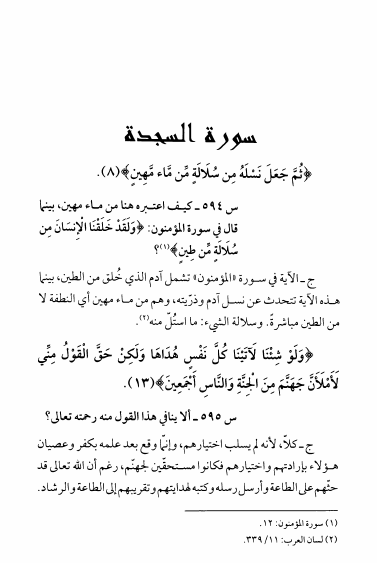 سورة السجدة
﴿ثُمَّ جَعَلَ نَسْلَهُ مِن سُلَالَةٍ مِّن مَّاء مَّهِينٍ﴾(٨).
س ٥٩٤ ـ كيف اعتبره هنا من ماء مهين، بينما
قال في سورة المؤمنون: ﴿وَلَقَدْ خَلَقْنَا الْإِنسَانَ مِن
سُلَالَةٍ مِّن طِينٍ﴾(١)؟
ج ـ الآية في سورة «المؤمنون» تشمل آدم الذي خُلق من الطين، بينما
هذه الآية تتحدث عن نسل آدم وذرّيته، وهم من ماء مهين أي النطفة لا
من الطين مباشرةً. وسلالة الشيء: ما استُلّ منه(٢).
﴿وَلَوْ شِئْنَا لَآتَيْنَا كُلَّ نَفْسٍ هُدَاهَا وَلَكِنْ حَقَّ الْقَوْلُ مِنِّي
لَأَمْلَأَنَّ جَهَنَّمَ مِنَ الْجِنَّةِ وَالنَّاسِ أَجْمَعِينَ﴾(١٣).
س ٥٩٥ ـ ألا ينافي هذا القول منه رحمته تعالى؟
ج ـ كلاّ، لأنه لم يسلب اختيارهم، وإنّما وقع بعد علمه بكفر وعصيان
هؤلاء بإرادتهم واختيارهم فكانوا مستحقّين لجهنّم، رغم أن الله تعالى قد
حثّهم على الطاعة وأرسل رسله وكتبه لهدايتهم وتقريبهم إلى الطاعة والرشاد.
(١) سورة المؤمنون: ١٢.
(٢) لسان العرب: ١١/ ٣٣٩.